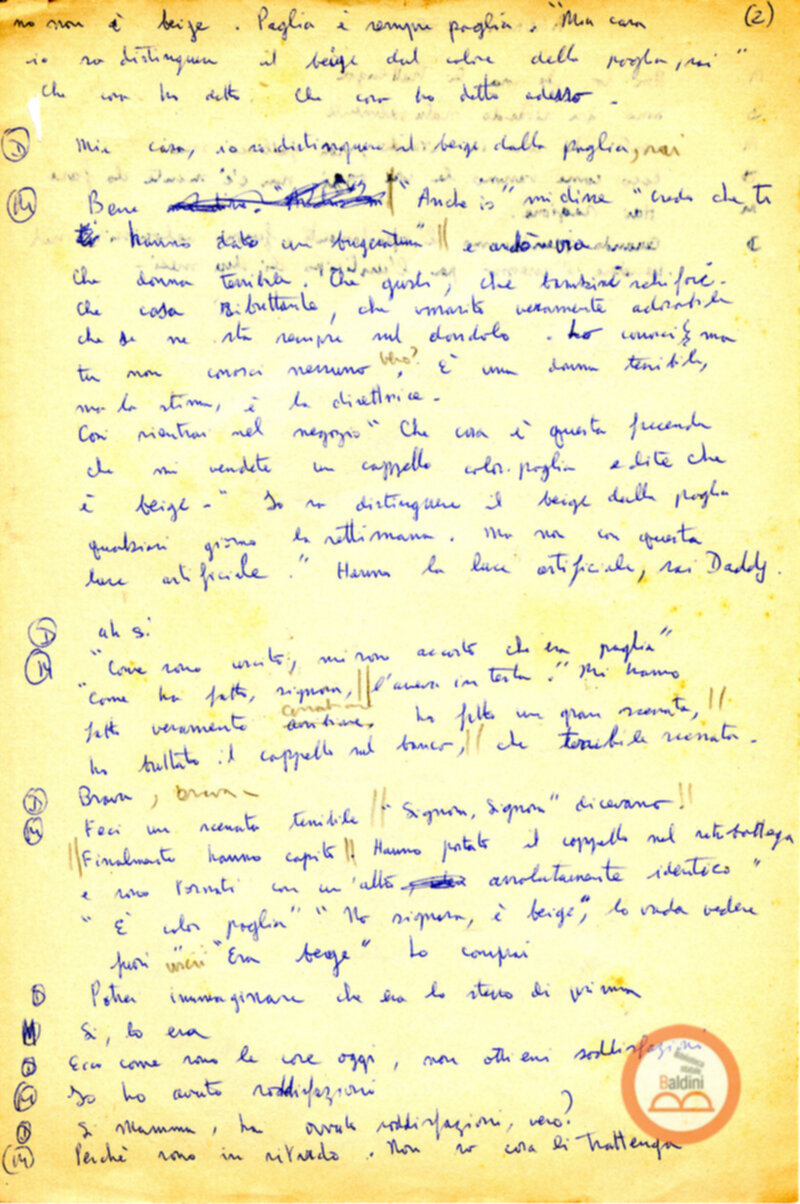 no non è beige. Paglia è sempre paglia. "Mia cara (2)
io so distinguere il beige dal colore della paglia, sai"
Che cosa ho detto. Che cosa ho detto adesso -
D Mia cara, io so distinguere il beige dalla paglia, sai
M Bene "Anche io" mi disse "credo che ti
hanno dato una fregatura" e andò via
Che donna terribile. Che gusti, che bambini schifosi.
Che casa ributtante, che marito veramente adorabile
che se ne sta sempre sul dondolo. Lo conosci, ma
tu non conosci nessuno vero? È una donna terribile,
ma la stimo, è la direttrice -
Così rientrai nel negozio "Che cosa è questa faccenda
che mi vendete un cappello color paglia e dite che
è beige -" Io so distinguere il beige dalla paglia
qualsiasi giorno la settimana. Ma non con questa
luce artificiale." Hanno la luce artificiale, sai Daddy.
D ah sì
M "Come sono uscita, mi sono accorta che era paglia"
"Come ha fatto, signora, l'aveva in testa." Mi hanno
fatto veramente ho fatto una gran scenata,
ho buttato il cappello sul banco, che terribile scenata -
D Brava, brava -
M Feci una scenata terribile "Signora, Signora" dicevano!
Finalmente hanno capito. Hanno portato il cappello nel retrobottega
e sono tornati con un'altro assolutamente identico"
"È color paglia" "No signora, è beige", lo vada vedere
fuori uscii "Era beige" Lo comprai
D Potrei immaginare che era lo stesso di prima
M Sì, lo era
D Ecco come sono le cose oggi, non ottieni soddisfazioni
M Io ho avuto soddisfazioni
D Sì Mamma, ha avuto soddisfazioni, vero?
M Perchè sono in ritardo. Non so cosa li trattenga
Biblioteca
statale
Baldini